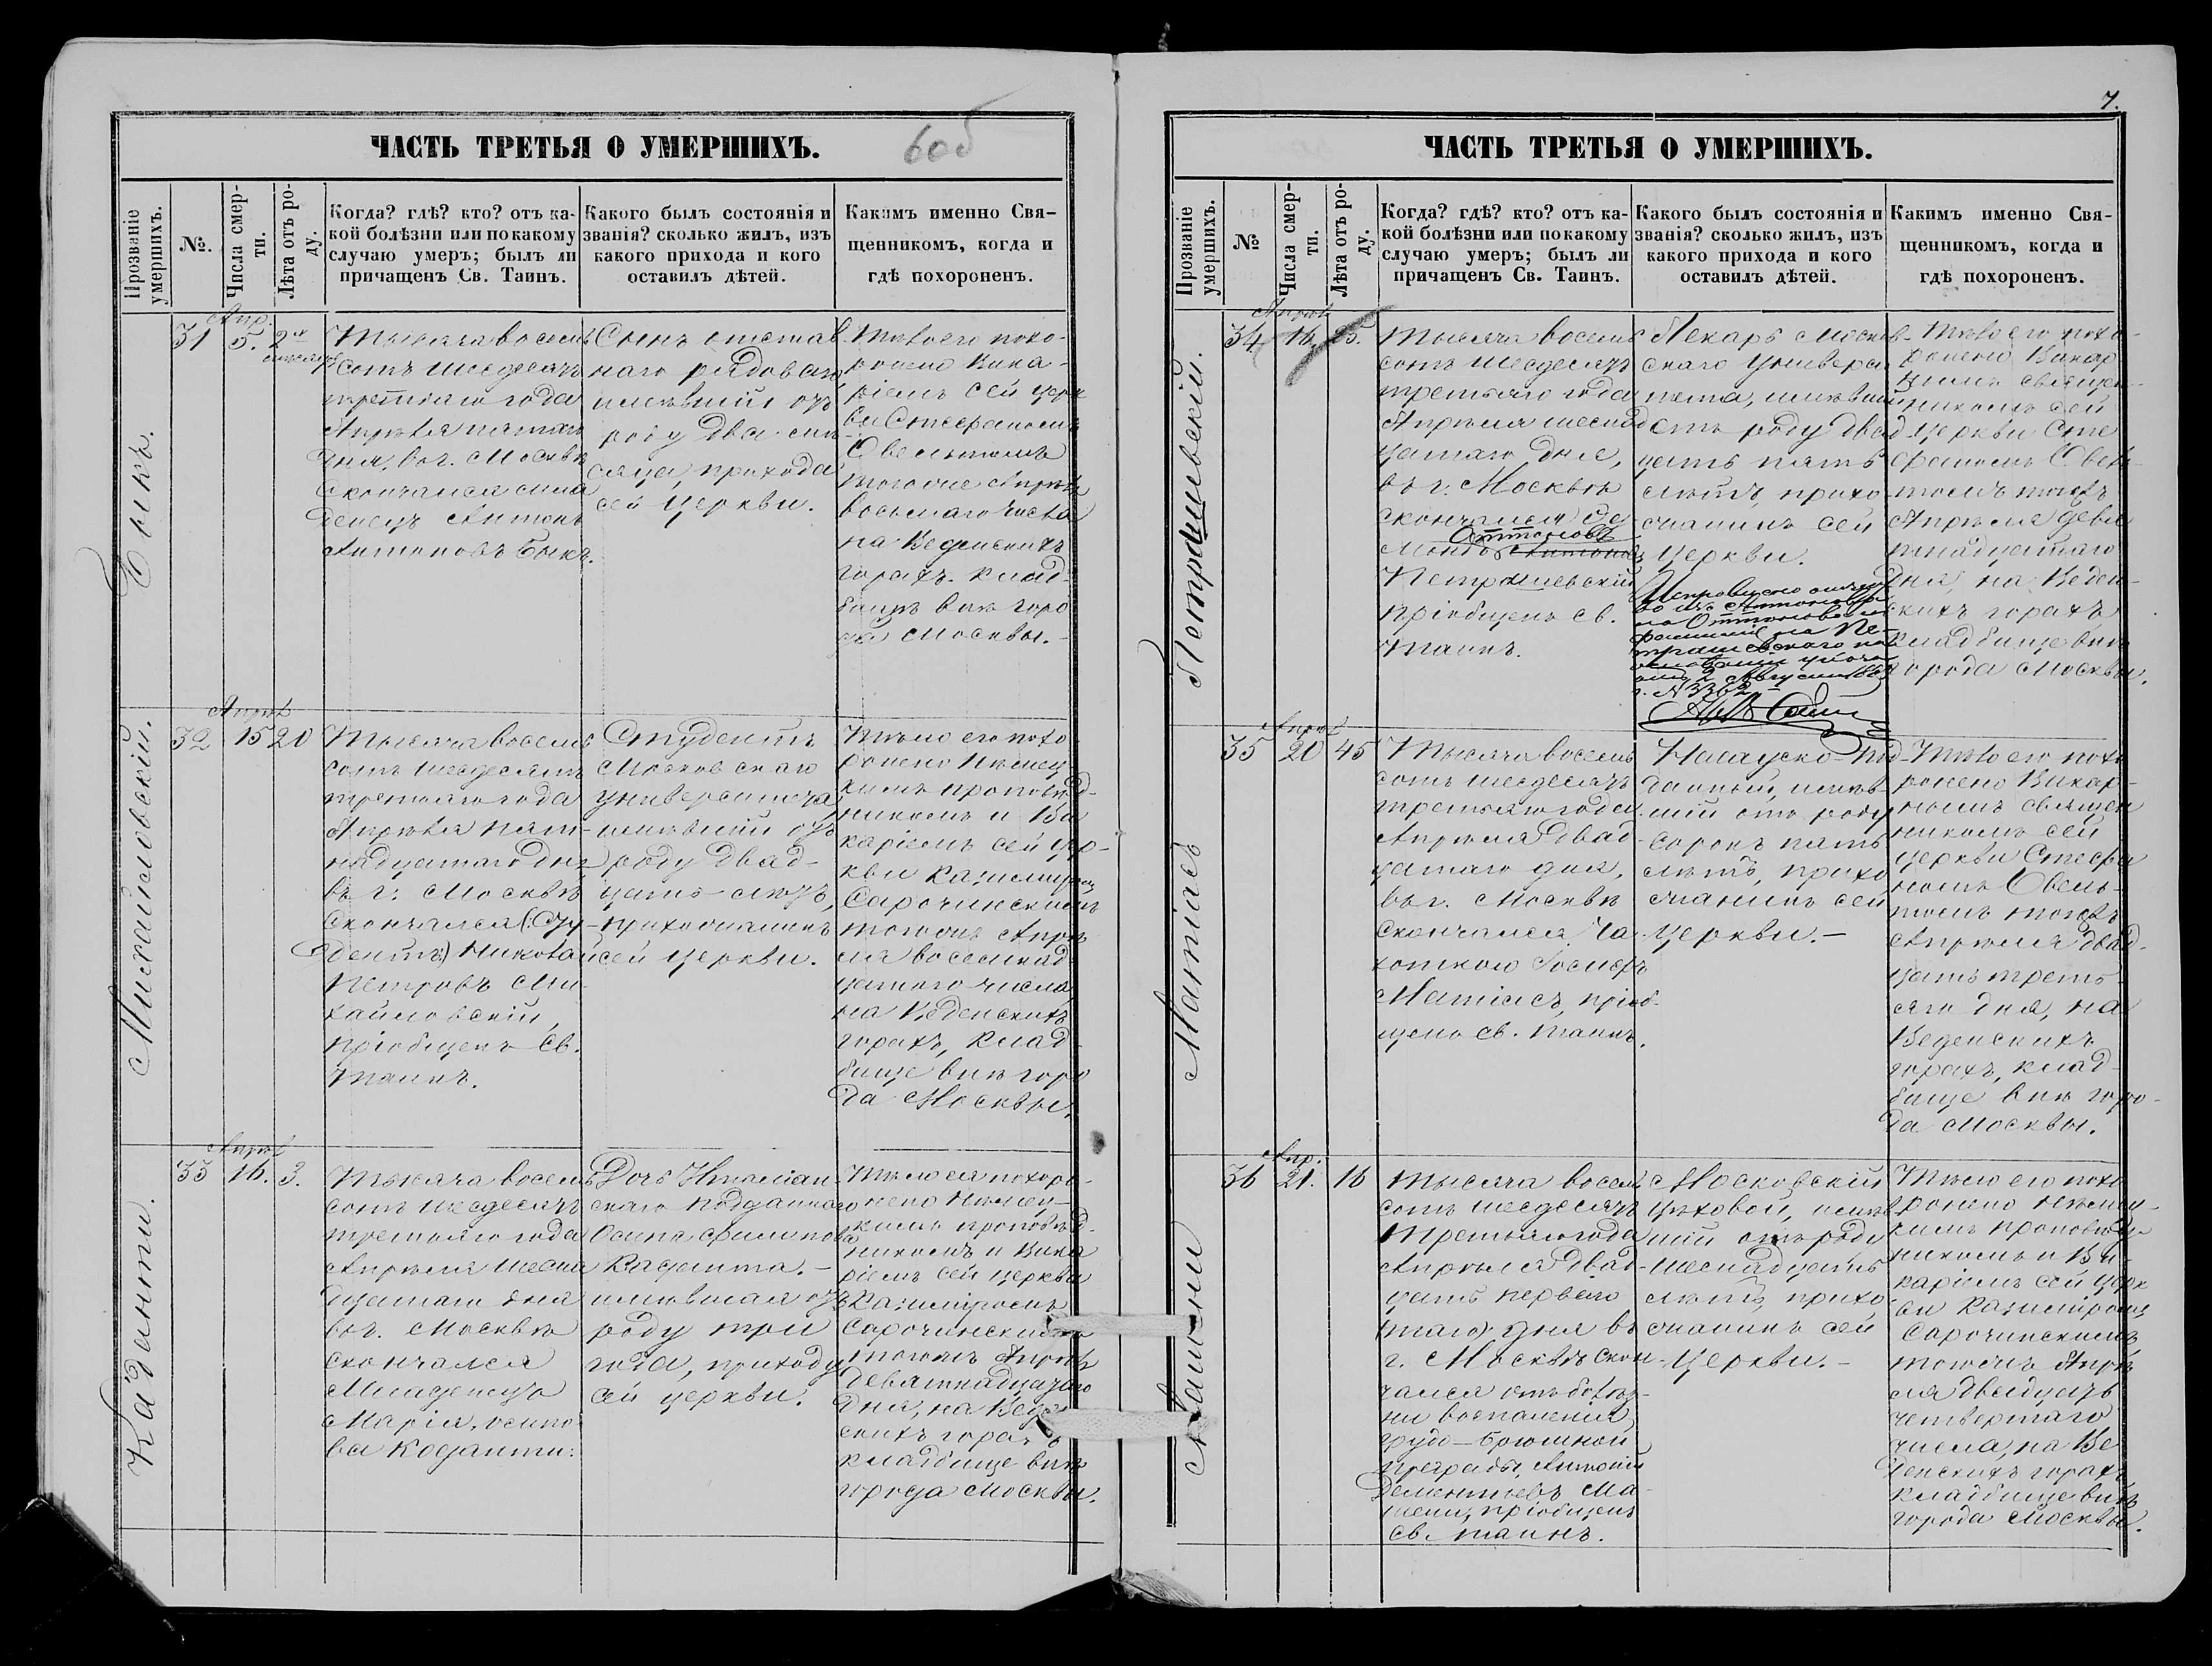 ЧАСТЬ ТРЕТЬЯ О УМЕРШИХЪ.
60б
Прозваніе умершихъ.
№.
Числа смер-
ти.
Лѣта отъ ро-
ду.
Когда? гдѣ? кто? отъ ка-
кой болѣзни или по какому
случаю умеръ; былъ ли
причащенъ Св. Таинъ.
Какого былъ состоянія и
званія? сколько жилъ, изъ
какого прихода и кого
оставилъ дѣтей.
Какимъ именно Свя-
щенникомъ, когда и
гдѣ похороненъ.
Быкъ.
31
Апр.
5.
2
Тысяча восемь
сотъ шесдесятъ
третьяго года
Апрѣля пятаго
дня, въ г. Москвѣ
скончался мла
денецъ Антонъ
Антоновъ Быкъ.
Сынъ отстав
наго рядоваго
имѣвшій отъ
роду два мѣ
сяца, прихода
сей церкви.
Тѣло его похо-
ронено Вика-
ріемъ сей церк
ви Стефаномъ
Овельтомъ
тогоже Апрѣля
восьмаго числа
на Веденскихъ
горахъ. клад-
бищѣ внѣ горо
да Москвы.-
Михайловскій.
32
Апрѣл
15
20
Тысяча восемь
сотъ шесдесятъ
третьяго года
Апрѣля пят-
надцатаго дня
въ г. Москвѣ
скончался (: Сту-
дентъ:) Николай
Петровъ Ми-
хайловскій,
пріобщенъ Св.
Таинъ.
Студентъ
Московскаго
университета
имѣвшій отъ
роду двад-
цать лѣтъ,
прихожанинъ
сей церкви.
Тѣло его похо-
ронено Нѣмец-
кимъ проповѣд-
никомъ и Ви
каріемъ сей цер-
кви Казимиромъ
Сарочинскимъ
тогожъ Апрѣ
ля восемнад-
цатого числа
на Веденскихъ
горахъ, клад-
бище внѣ горо
да Москвы.
Каданти.
33
Апрѣл
16.
3.
Тысяча восемь
сотъ шесдесятъ
третьяго года
Апрѣля шесна
дцатаго дня
въ г. Москвѣ
скончался
Младенецъ
Марія, осипо-
ва Кодянти.
Дочь Италіан-
скаго подданнаго
Осипа Филипова
Кадянта.-
имѣвшая отъ
роду три
года, приходу
сей церкви.
Тѣло ея похоро-
нено Нѣмец-
кимъ проповѣд-
никомъ и Вика
ріемъ сей церкви
Казимиромъ
Сорочинскимъ
тогожъ Апрѣля
девятнадцатаго
дня, на Веден
скихъ горахъ
кладбище внѣ
города Москвы.
7.
ЧАСТЬ ТРЕТЬЯ О УМЕРШИХЪ.
Прозваніе умершихъ.
№
Числа смер-
ти.
Лѣта отъ ро-
ду.
Когда? гдѣ? кто? отъ ка-
кой болѣзни или по какому
случаю умеръ; былъ ли
причащенъ Св. Таинъ.
Какого былъ состоянія и
званія? сколько жилъ, изъ
какого прихода и кого
оставилъ дѣтей.
Какимъ именно Свя-
щенникомъ, когда и
гдѣ похороненъ.
Петрашевскій.
34
Апрѣл
16.
25.
Тысяча восемь
сотъ шесдесятъ
третьяго года
Апрѣля шеснад
цатаго дня,
въ г. Москвѣ
скончался Эд
Оттоновъ
мондъ Антоновъ
Петрашевскій
пріобщенъ св.
Таинъ.
Лекарь Москов-
скаго Универси
тета, имѣвшій
отъ роду двад
цать пять
лѣтъ, прихо
жанинъ сей
церкви.
Исправлено отчест
во изъ Антоновъ
на Оттоновъ и
фамилія на Пе-
трашевскаго на
основаніи указа
отъ 2 Августа
г. № 3362
Тѣло его похо-
ронено Викар
нымъ священ-
никомъ сей
церкви Сте
фаномъ Овель-
томъ тогожъ
Апрѣля девя
тнадцатаго
дня, на Веден-
скихъ горахъ
кладбище внѣ
города Москвы.
Матіасъ
35
Апрѣл
20
45
Тысяча восемь
сотъ шесдесятъ
третьяго года
Апрѣля двад-
цатаго дня,
въ г. Москвѣ
скончался, Ка
толикъ Іосифъ
Матіасъ, пріоб-
щенъ св. таинъ.
Насауско-под
данный, имѣв-
шій отъ роду
сорокъ пять
лѣтъ, прихо
жанинъ сей
церкви.-
Тѣло его похо
ронено Викар-
нымъ священ
никомъ сей
церкви Стефа
номъ Овель-
томъ тогожъ
Апрѣля двад-
цать треть-
яго дня, на
Веденскихъ
горахъ, клад-
бище внѣ горо-
да Москвы.
Машени
36
Апр.
21.
16
Тысяча восемь
сотъ шесдесятъ
Третьяго года
Апрѣля двад-
цать перваго
дня въ
г. Москвѣ скон-
чался отъ болѣз-
ни воспаленія
грудо-брюшной
преграды, Антоній
Дементьевъ Ма-
шени, пріобщенъ
св. таинъ.
Московскій
Цѣховой, имѣв
шій отъ роду
шеснадцать
лѣтъ, прихо
жанинъ сей
церкви.-
Тѣло его похо
ронено Нѣмец-
кимъ проповѣд-
никомъ и Ви-
каріемъ сей церк
ви Казимиромъ
Сорочинскимъ
тогожъ Апрѣ
ля двадцать
четвертаго
числа, на Ве
денскихъ горахъ
кладбище внѣ
города Москвы.